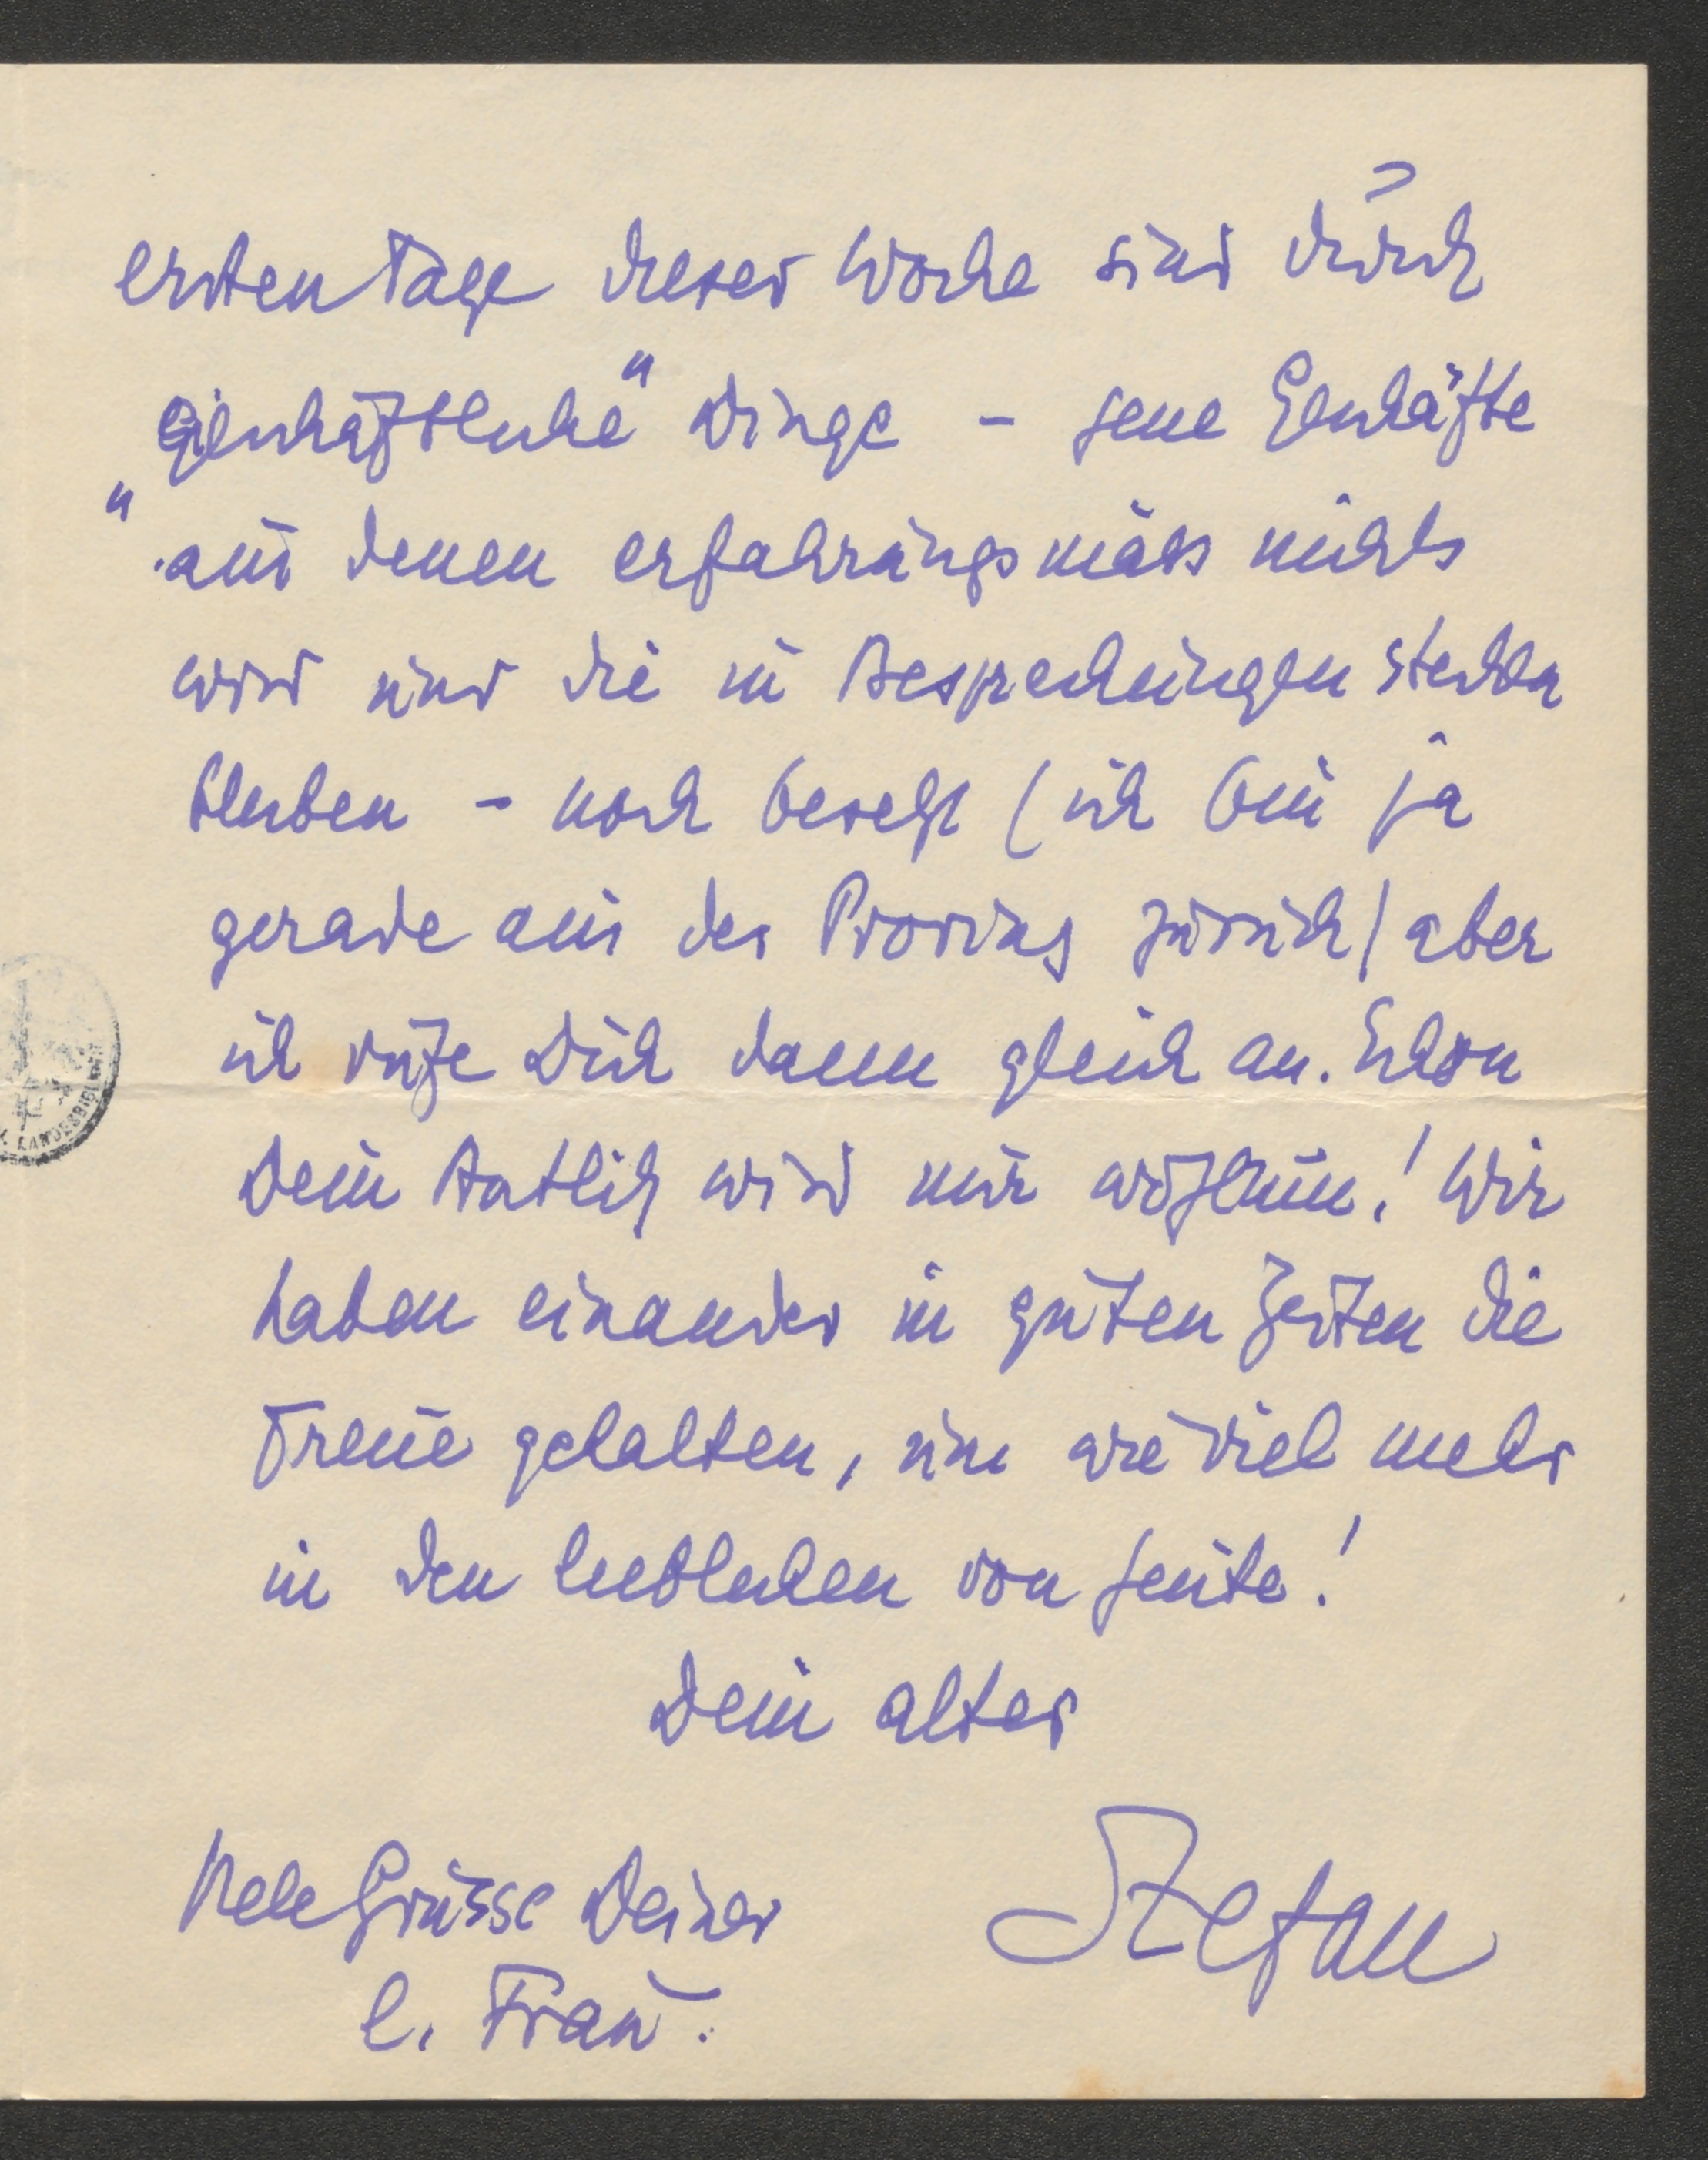 ersten Tage dieser Woche sind durch
„geschäftliche“ Dinge – jene Geschäfte
aus denen erfahrungsmäss nichts
wird und die in Besprechungen stecken
bleiben – noch besetzt (ich bin ja
gerade aus der Provinz zurück) aber
ich rufe Dich dann gleich an. Schon
Dein Antlitz wird mir wohltun! Wir
haben einander in guten Zeiten die
Treue gehalten, um wie viel mehr
in den lieblichen von heute!
Dein alter
Stefan
Viele Grüsse Deiner
l. Frau.
LANDESBIBL